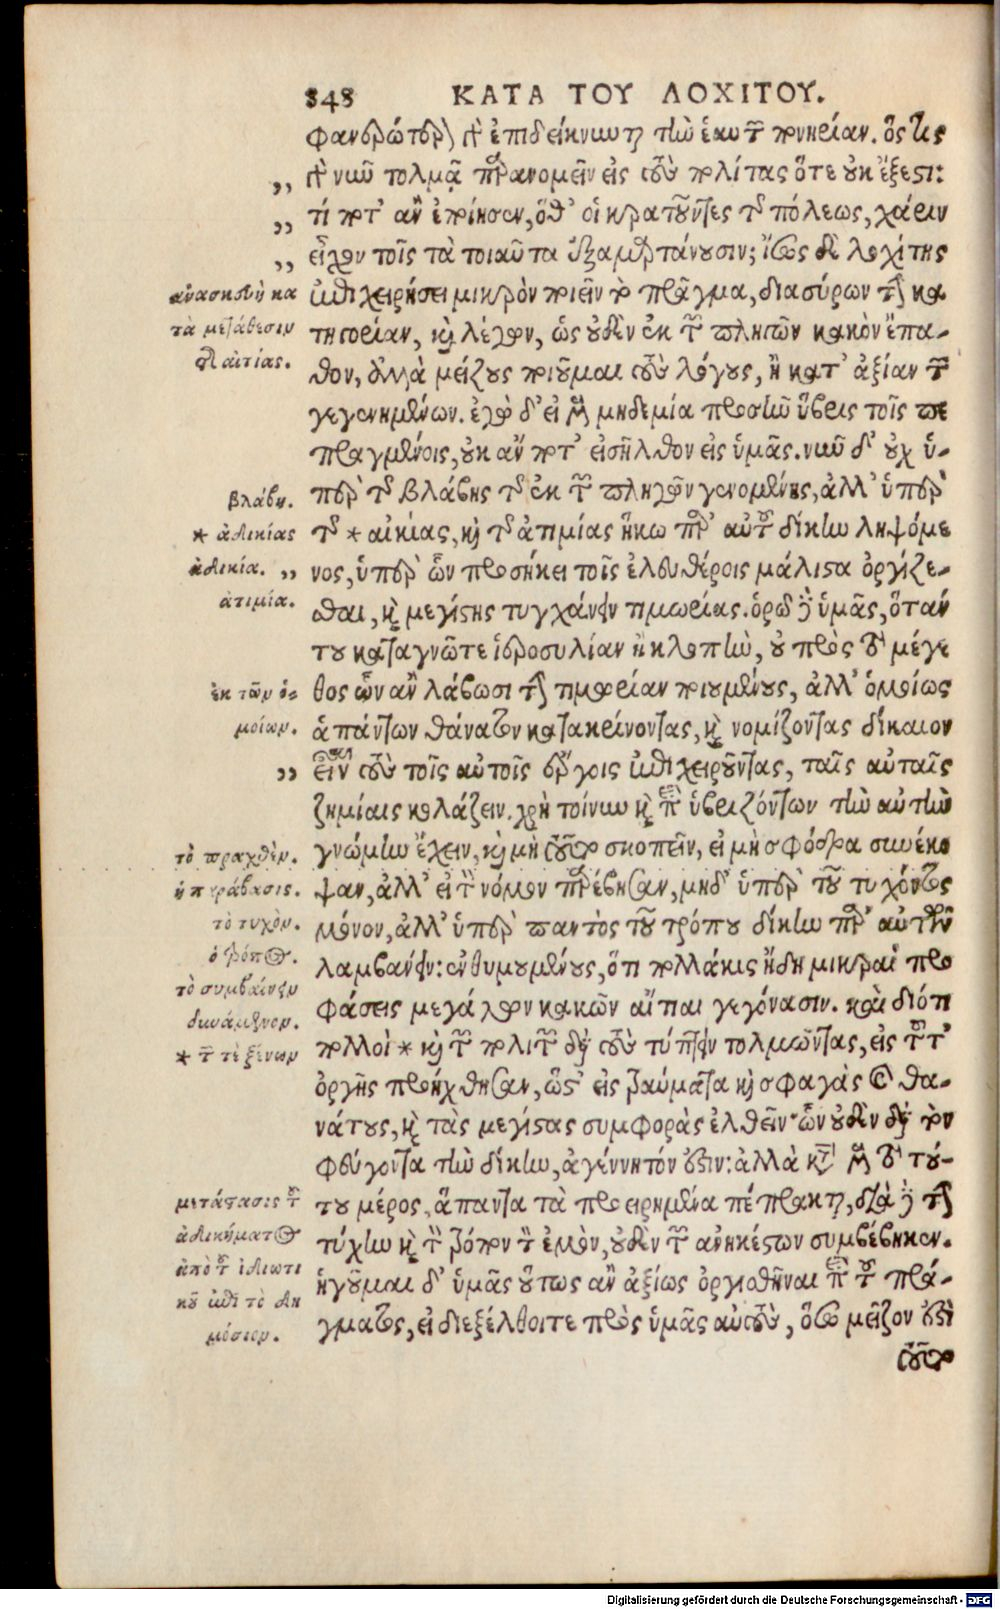 348 ΚΑΤΑ ΤΟΥ ΛΟΧΙΤΟΥ.
φανερώτερον καὶ ἐπιδείκνυται τὴν ἑαυτῶν πονηρίαν. ὅς τις
„ καὶ νῦν τολμᾷ παρανομεῖν εἰς τοὺς πολίτας ὅτε οὐκ ἔξεστι:
„ τί ποτ' ἂν ἐποίησεν, ὅθ' οἱ κρατοῦντες τῆς πόλεως, χάριν
„ εἶχον τοῖς τὰ τοιαῦτα ἐξαμαρτάνουσιν; ἴσως δὲ λοχίτης
ἀνασκευὴ κα
ἐπιχειρήσει μικρὸν ποιεῖν τὸ πρᾶγμα, διασύρων τὴν κα
τὰ μετάθεσιν
τηγορίαν, καὶ λέγων, ὡς οὐδὲν ἐκ τῶν πληγῶν κακὸν ἔπα-
τῆς αἰτίας.
θον, ἀλλὰ μείζους ποιοῦμαι τοὺς λόγους, ἢ κατ' ἀξίαν τῶν
γεγενημένων. ἐγὼ δ' εἰ μὲν μηδεμία προσῆν ὕβρις τοῖς πε
πραγμένοις, οὐκ ἄν ποτ' εἰσῆλθον εἰς ὑμᾶς. νῦν δ' οὐχ ὑ-
βλάβη.
πὲρ τῆς βλάβης τῆς ἐκ τῶν πληγῶν γενομένης, ἀλλ' ὑπὲρ
* ἀδικίας
τῆς * αἰκίας, καὶ τῆς ἀτιμίας ἥκω παρ' αὐτοῦ δίκην ληψόμε
ἀδικία. „
νος, ὑπὲρ ὧν προσήκει τοῖς ἐλευθέροις μάλιστα ὀργίζε-
ἀτιμία.
σθαι, καὶ μεγίστης τυγχάνειν τιμωρίας. ὁρῶ δ' ὑμᾶς, ὅταν
του καταγνῶτε ἱεροσυλίαν ἢ κλοπὴν, οὐ πρὸς τὸ μέγε
ἐκ τῶν ὁ-
θος ὧν ἂν λάβωσι τὴν τιμωρίαν ποιουμένους, ἀλλ' ὁμοίως
μοίων.
ἁπάντων θάνατον κατακρίνοντας, καὶ νομίζοντας δίκαιον
„ εἶναι τοὺς τοῖς αὐτοῖς ἔργοις ἐπιχειροῦντας, ταῖς αὐταῖς
ζημίαις κολάζειν. χρὴ τοίνυν καὶ περὶ ὑβριζόντων τὴν αὐτὴν
τὸ πραχθὲν.
γνώμην ἔχειν, καὶ μὴ τοῦτο σκοπεῖν, εἰ μὴ σφόδρα συνέκο
ἡ παράβασις.
ψαν, ἀλλ' εἰ τὸν νόμον παρέβησαν, μηδ' ὑπὲρ τοῦ τυχόντος
τὸ τυχὸν.
μόνον, ἀλλ' ὑπὲρ παντὸς τοῦ τρόπου δίκην παρ' αὐτῶν
ὁ τρόπος.
λαμβάνειν: ἐνθυμουμένους, ὅτι πολλάκις ἤδη μικραὶ προ
τὸ συμβαίνειν
φάσεις μεγάλων κακῶν αἴτιαι γεγόνασιν. καὶ διότι
δυνάμενον.
πολλοὶ * καὶ τῶν πολιτῶν διὰ τοὺς τύπτειν τολμῶντας, εἰς τοῦτ'
* τῶν τε ξένων
ὀργῆς προήχθησαν, ὥστ' εἰς τραύματα καὶ σφαγὰς καὶ θα-
νάτους, καὶ τὰς μεγίστας συμφορὰς ἐλθεῖν· ὧν οὐδὲν διὰ τὸν
φεύγοντα τὴν δίκην, ἀγέννητόν ἐστιν: ἀλλὰ κατὰ μὲν τὸ τού-
μετάστασις τοῦ
του μέρος, ἅπαντα τὰ προειρημένα πέπρακται, διὰ δὲ τὴν
ἀδικήματος
τύχην καὶ τὸν τρόπον τὸν ἐμὸν, οὐδὲν τῶν ἀνηκέστων συμβέβηκεν.
ἀπὸ τοῦ ἰδιωτι
ἡγοῦμαι δ' ὑμᾶς οὕτως ἂν ἀξίως ὀργισθῆναι περὶ τοῦ πρά-
κοῦ ἐπὶ τὸ δη
γματος, εἰ διεξέλθοιτε πρὸς ὑμᾶς αὐτοὺς, ὅσῳ μεῖζον ἐστὶ
μόσιον.
τοῦτο
Digitalisierung gefördert durch die Deutsche Forschungsgemeinschaft - DFG